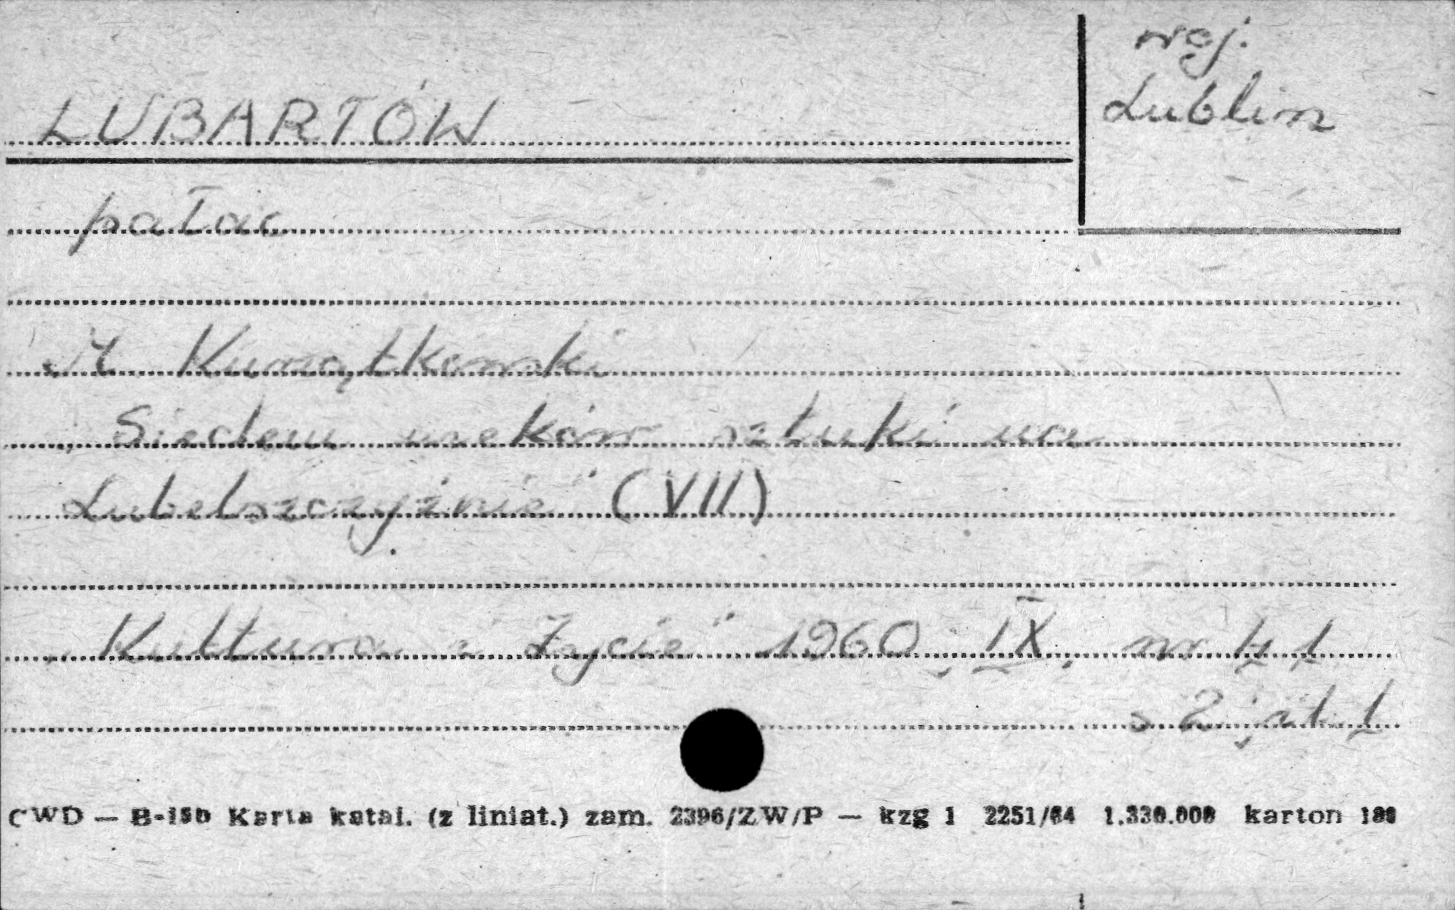 woj.
Lublin
LUBARTÓW
pałac
M Kurzątkowski
„Siedem wieków sztuki na
Lubelszczyźnie" (VII)
„Kultura i Życie" 1960, IX, nr 41
s 2, il. 1
CWD — B-15b Karta katal. (z liniat.) zam. 2396/ZW/P — kzg 1 2251/64 1.330.000 karton